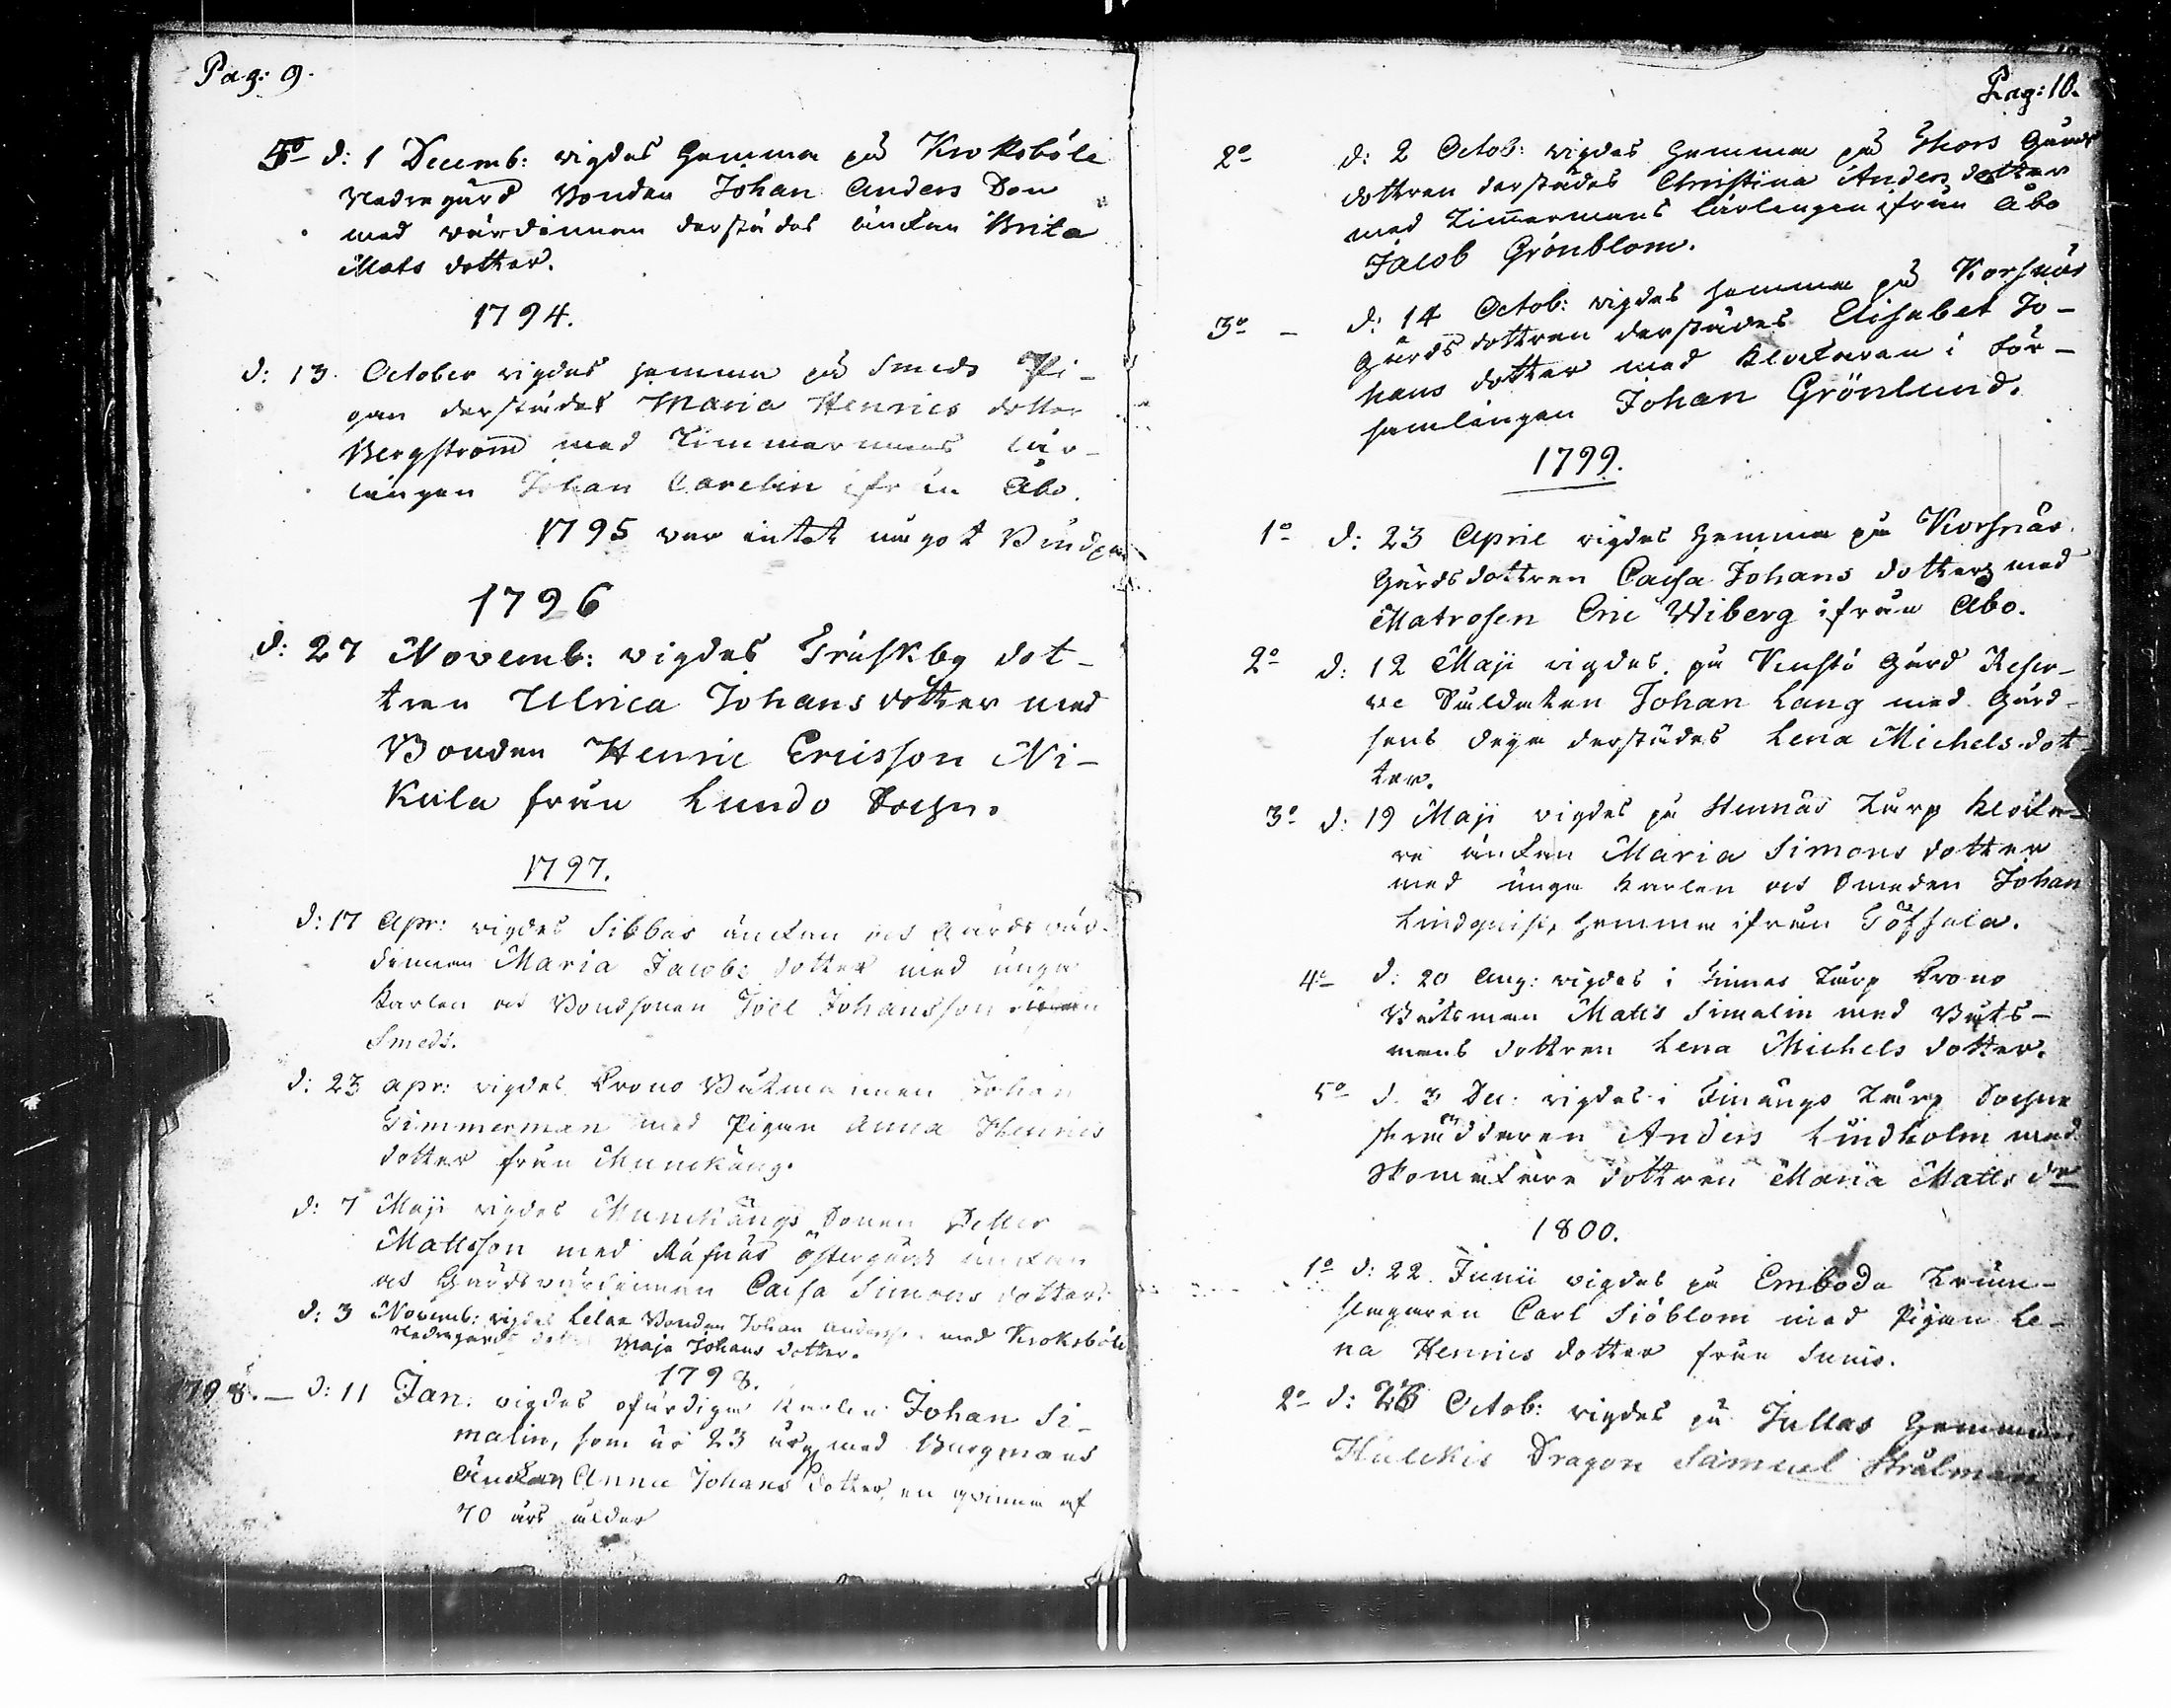 Pag: 9.
5º d: 1 Decemb: vigdes hemma på Kroksböle
Nedregård Bonden Johan Anders Son
med värdinnan derstädes änckan Brita
Mats dotter.
1794.
d: 13. October vigdes hemma på Smeds Pi-
gan derstädes Maria Henrics dotter
Bergström med Timmermans lär-
lingen Johan Carelin ifrån Åbo.
1795 var intet något Brudpar
1796
d: 27 Novemb: vigdes Träskby dot-
tren Ulrica Johans dotter med
Bonden Henric Ericsson Ni-
kula från Lundo Sochn.
1797.
d: 17 Apr: vigdes Sibbas änckan och Gårds vär-
dinnan Maria Jacobs dotter med unga
Karlen och Bondsonen Joel Johansson
Smeds.
d: 23 apr: vigdes Crono Båtsmannen Johan
Timmerman med Pigan Anna Henrics
dotter från Munckäng.
d: 7 Maji vigdes Munckängs Sonen Petter
Mattsson med Räfsnäs Östergårds änckan
och Gårdsvärdinnan Caisa Simons dotter.
d: 3 Novemb: vigdes Bonden Johan Andersson med Kroksböle
Nedregårds Maja Johans dotter.
1798.
1798. — d: 11 Jan: vigdes ofärdiga Karlen Johan Si-
malin, som är 23 år, med Burgmans
Änckan Anna Johans Dotter, en qvinna af
70 års ålder
Pag: 10.
2º d: 2 Octob: vigdes hemma på Thors Gårds
dottren derstädes Christina Anders dotter
med Timmermans lärlingen ifrån Åbo
Jacob Grönblom.
3º — d: 14 Octob: vigdes hemma på Korsnäs
Gårds dottren derstädes Elisabet Jo-
hans dotter med Klockaren i För-
samlingen Johan Grönlund.
1799.
1º d: 23 April vigdes hemma på Korsnäs
Gårdsdottren Caisa Johans dotter med
Matrosen Eric Wiberg ifrån Åbo.
2º d: 12 Maji vigdes på Kustö Gård Reser-
ve Suldaten Johan Lang med Gård-
sens deya derstädes Lena Michels dot-
ter.
3º d: 19 Maji vigdes på Torp Klocka-
re änckan Maria Simons dotter
med unga Karlen och Smeden Johan
Lindquist, hemma ifrån Töfsala.
4º d: 20 Aug: vigdes i Finnas Torp Crono
Båtsman Matts Simalin med Båts-
mans dottren Lena Michels dotter.
5º d. 3 Dec: vigdes i Finängs Torp Sochne
skräddaren Anders Lindholm med
Skomakare dottren Maria Matts dr
1800.
1º d: 22. Junii vigdes på Emboda Trum-
slagaren Carl Siöblom med Pigan Le-
na Henrics dotter från Sunis.
2º d: 26 Octob: vigdes på Jullas hemman
Hulckis Dragon Samuel Strålman